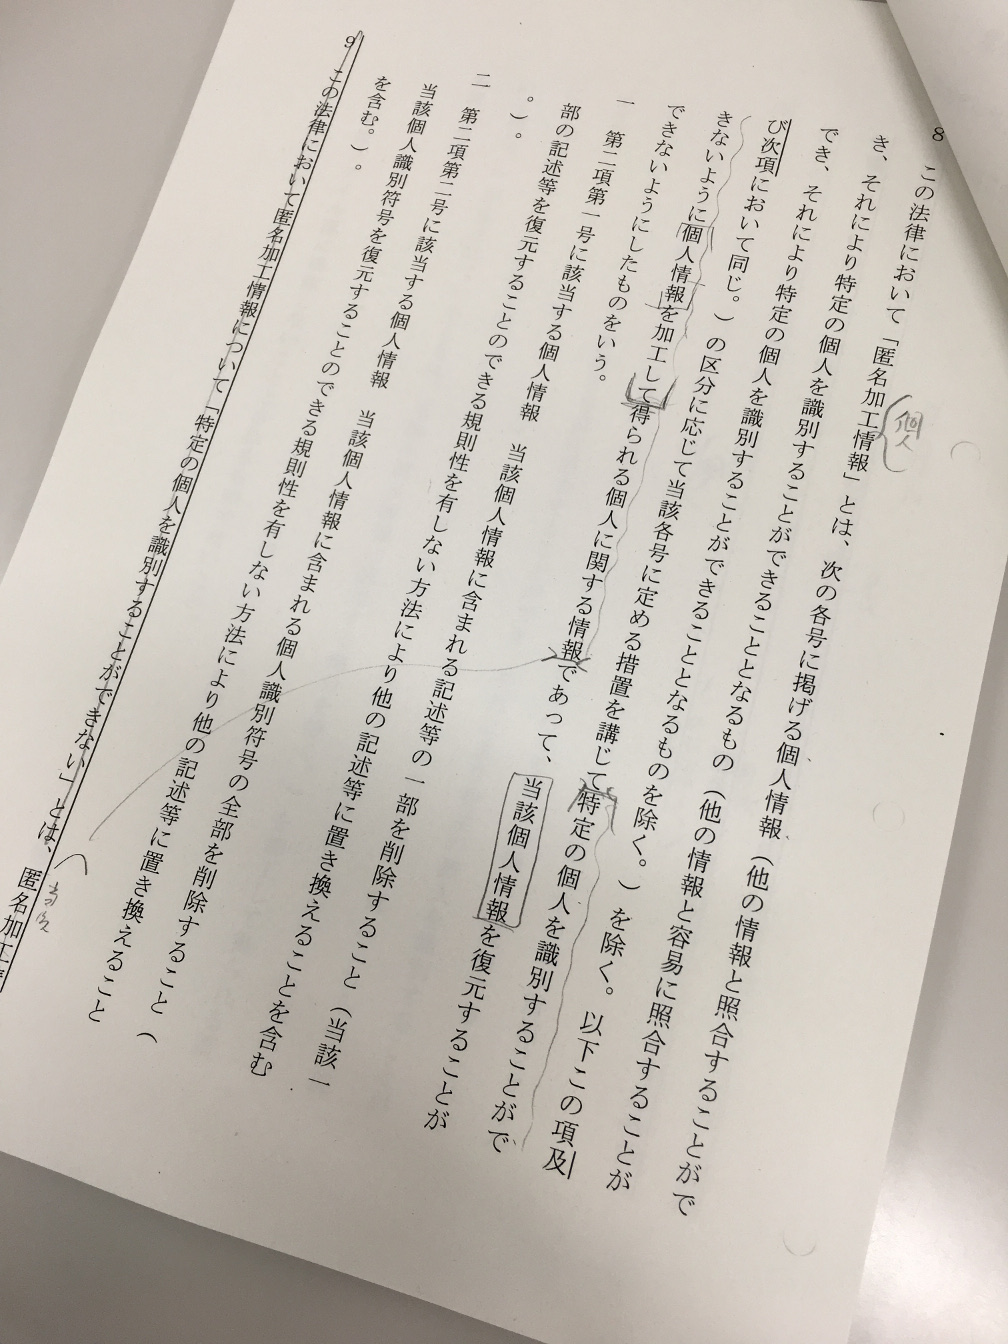 8　この法律において「匿名加工情報」とは、次の各号に掲げる個人情報（他の情報と照合することがで
個人
き、それにより特定の個人を識別することができることとなるもの（他の情報と容易に照合することが
でき、それにより特定の個人を識別することができることとなるものを除く。）を除く。以下この項及
び次項において同じ。）の区分に応じて当該各号に定める措置を講じて特定の個人を識別することがで
きないように個人情報を加工して得られる個人に関する情報であって、当該個人情報を復元することが
できないようにしたものをいう。
一　第二項第一号に該当する個人情報　当該個人情報に含まれる記述等の一部を削除すること（当該一
部の記述等を復元することのできる規則性を有しない方法により他の記述等に置き換えることを含む
。）。
二　第二項第二号に該当する個人情報　当該個人情報に含まれる個人識別符号の全部を削除すること（
当該個人識別符号を復元することのできる規則性を有しない方法により他の記述等に置き換えること
を含む。）。
9　この法律において匿名加工情報について「特定の個人を識別することができない」とは、匿名加工